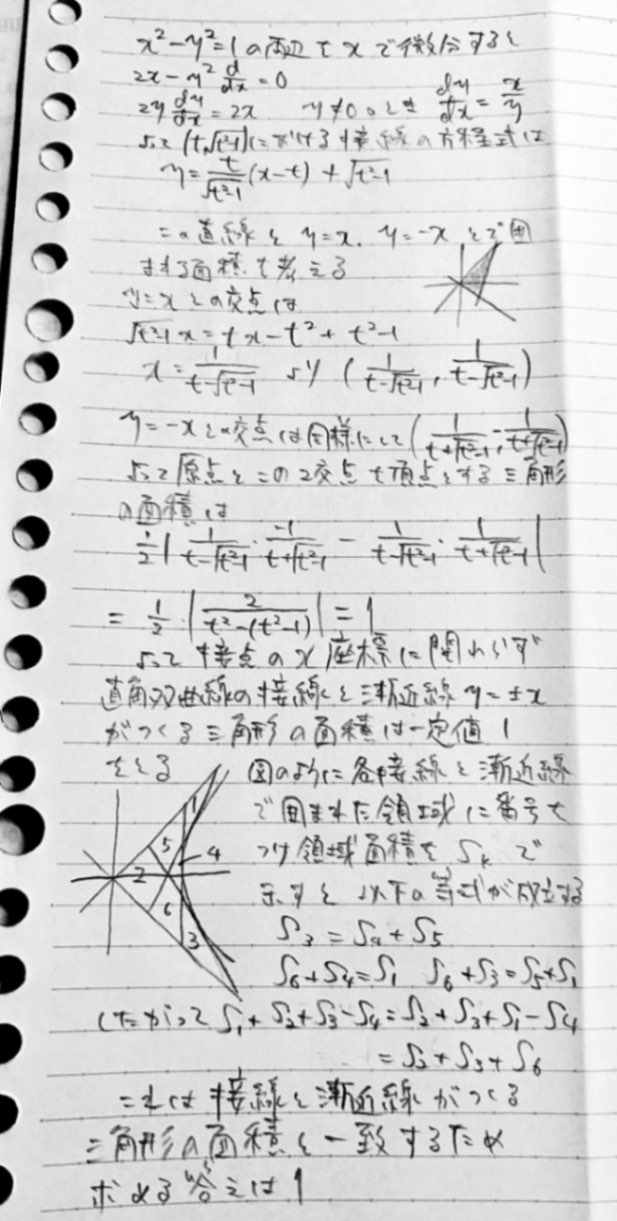 x²-y²=1の両辺をxで微分すると
2x-y² d/dx=0
2y dy/dx=2x y≠0のとき dy/dx=x/y
よって(t,√t²-1)における接線の方程式は
y=t/√t²-1(x-t)+√t²-1
この直線とy=x, y=-xとで囲
まれる面積を考える
y=xとの交点は
√t²-1 x=tx-t²+t²-1
x=1/t-√t²-1 より (1/t-√t²-1, 1/t-√t²-1)
y=-xとの交点は同様にして(1/t+√t²-1, -1/t+√t²-1)
よって原点とこの2交点を頂点とする三角形
の面積は
1/2|1/t-√t²-1・-1/t+√t²-1 - 1/t-√t²-1・1/t+√t²-1|
=1/2・|2/t²-(t²-1)|=1
よって接点のx座標に関わらず
直角双曲線の接線と漸近線y=±x
がつくる三角形の面積は一定値1
をとる 図のように各接線と漸近線
で囲まれた領域に番号を
つけ領域面積をSkで
示すと以下の等式が成立する
1
5
2
4
6
3
S3=S4+S5
S6+S4=S1 S6+S3=S5+S1
したがってS1+S2+S3-S4=S2+S3+S1-S4
=S2+S3+S6
これは接線と漸近線がつくる
三角形の面積と一致するため
求める答えは1